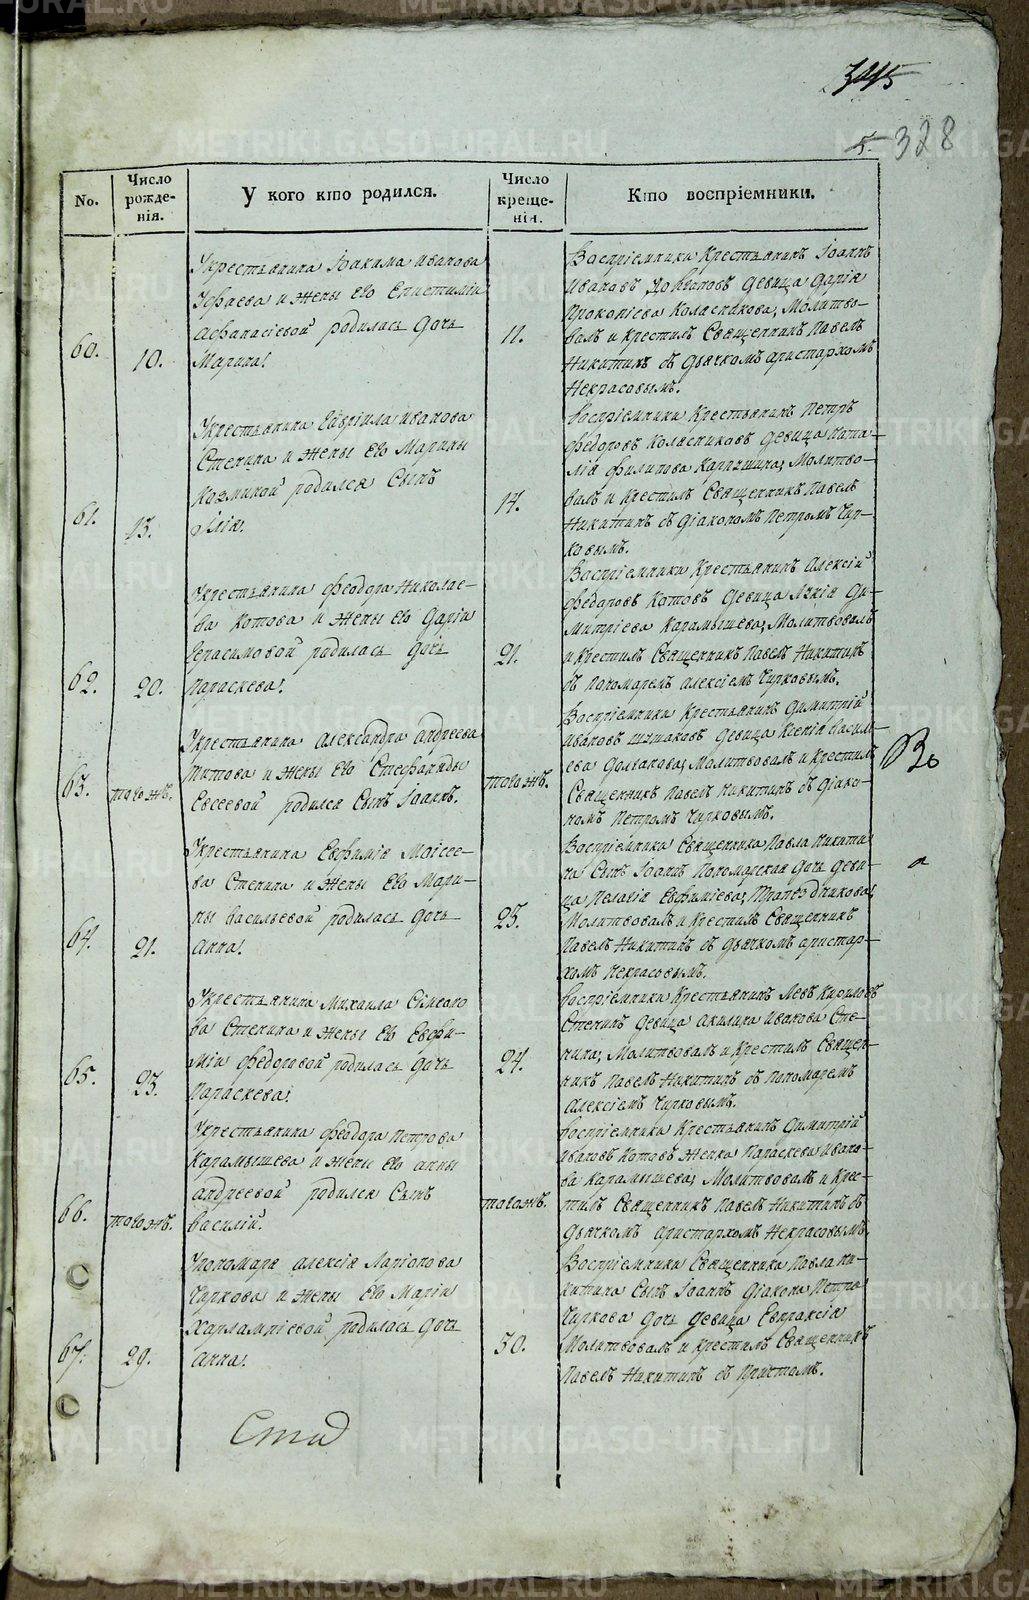 345
5. 328
No.
Число рождe-нія.
У кого кто родился.
Число креще-нія.
Кто воспріемники.
60.
10.
Укрестьянина Іоакима Иванова
и жены Его Епистиміи
Афанасіевой родилась дочь
Марина.
11.
Воспріемники Крестьянинъ Іоаннъ
Ивановъ девица Дарія
Прокопіева Колясникова, Молитво-
валъ и крестилъ Священникъ Павелъ
Никитинъ съ дьячкомъ Аристархомъ
Некрасовымъ.
61.
13.
Укрестьянина Гавріила Иванова
Степина и жены Его Марины
Козминой родился Сынъ
Илія.
14.
Воспріемники Крестьянинъ Петръ
Федоровъ Колясниковъ девица Ната-
лія Филипова Молитво-
валъ и крестилъ Священникъ Павелъ
Никитинъ съ діакономъ Петромъ Чир-
ковымъ.
62.
20.
Укрестьянина Феодора Николае-
ва Котова и жены Его Даріи
Герасимовой родилась дочь
Параскева.
21.
Воспріемники Крестьянинъ Алексій
Федоровъ Котовъ девица Ди-
митріева Карамышева, Молитвовалъ
и крестилъ Священникъ Павелъ Никитинъ
съ пономаремъ Алексіемъ Чирковымъ.
63.
тогожъ.
Укрестьянина Александра Андреева
Титова и жены Его Стефаниды
Евсеевой родился Сынъ Іоаннъ.
тогожъ.
Воспріемники Крестьянинъ Димитрій
Ивановъ девица Ксенія Василь-
ева Молитвовалъ и крестилъ
Священникъ Павелъ Никитинъ съ діако-
номъ Петромъ Чирковымъ.
Во
64.
21.
Укрестьянина Евфимія Моісее-
ва Степина и жены Его Мари-
ны Васильевой родилась дочь
Анна.
23.
Воспріемники Священника Павла Никити-
на Сынъ Іоаннъ Пономарская дочь деви-
ца Пелагія Евфиміева
Молитвовалъ и крестилъ Священникъ
Павелъ Никитинъ съ дьячкомъ Аристар-
хомъ Некрасовымъ.
65.
23.
Укрестьянина Михаила
Степина и жены Его Евфи-
міи Федоровой родилась дочь
Параскева.
24.
Воспріемники Крестьянинъ Левъ Кириловъ
Степинъ девица Акилина Иванова Сте-
пина, Молитвовалъ и крестилъ Священ-
никъ Павелъ Никитинъ съ пономаремъ
Алексіемъ Чирковымъ.
66.
тогожъ.
Укрестьянина Феодора Петрова
Карамышева и жены Его Анны
Андреевой родился Сынъ
Василій.
тогожъ.
Воспріемники Крестьянинъ Димитрій
Ивановъ Котовъ женка Параскева Ивано-
ва Карамышева, Молитвовалъ и крес-
тилъ Священникъ Павелъ Никитинъ съ
дьячкомъ Аристархомъ Некрасовымъ.
67.
29.
Упономаря Алексія Ларіонова
Чиркова и жены Его Маріи
Харлампіевой родилась дочь
Анна.
30.
Воспріемники Священника Павла Ни-
китина Сынъ Іоаннъ діакона Петра
Чиркова дочь девица Евпраксія
Молитвовалъ и крестилъ Священникъ
Павелъ Никитинъ съ Причтомъ.
METRIKI.GASO-URAL.RU